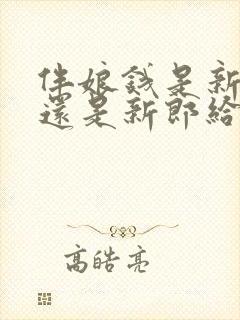 伴娘錢是新
還是新郎給
高皓亮